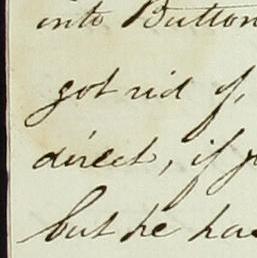 into Button
got rid of,
direct, if y
but he ha